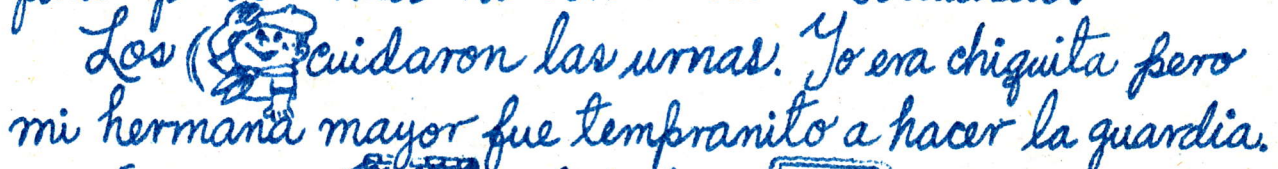 Los ( cuidaron las urnas. Yo era chiquita pero
mi hermana mayor fue tempranito a hacer la guardia.